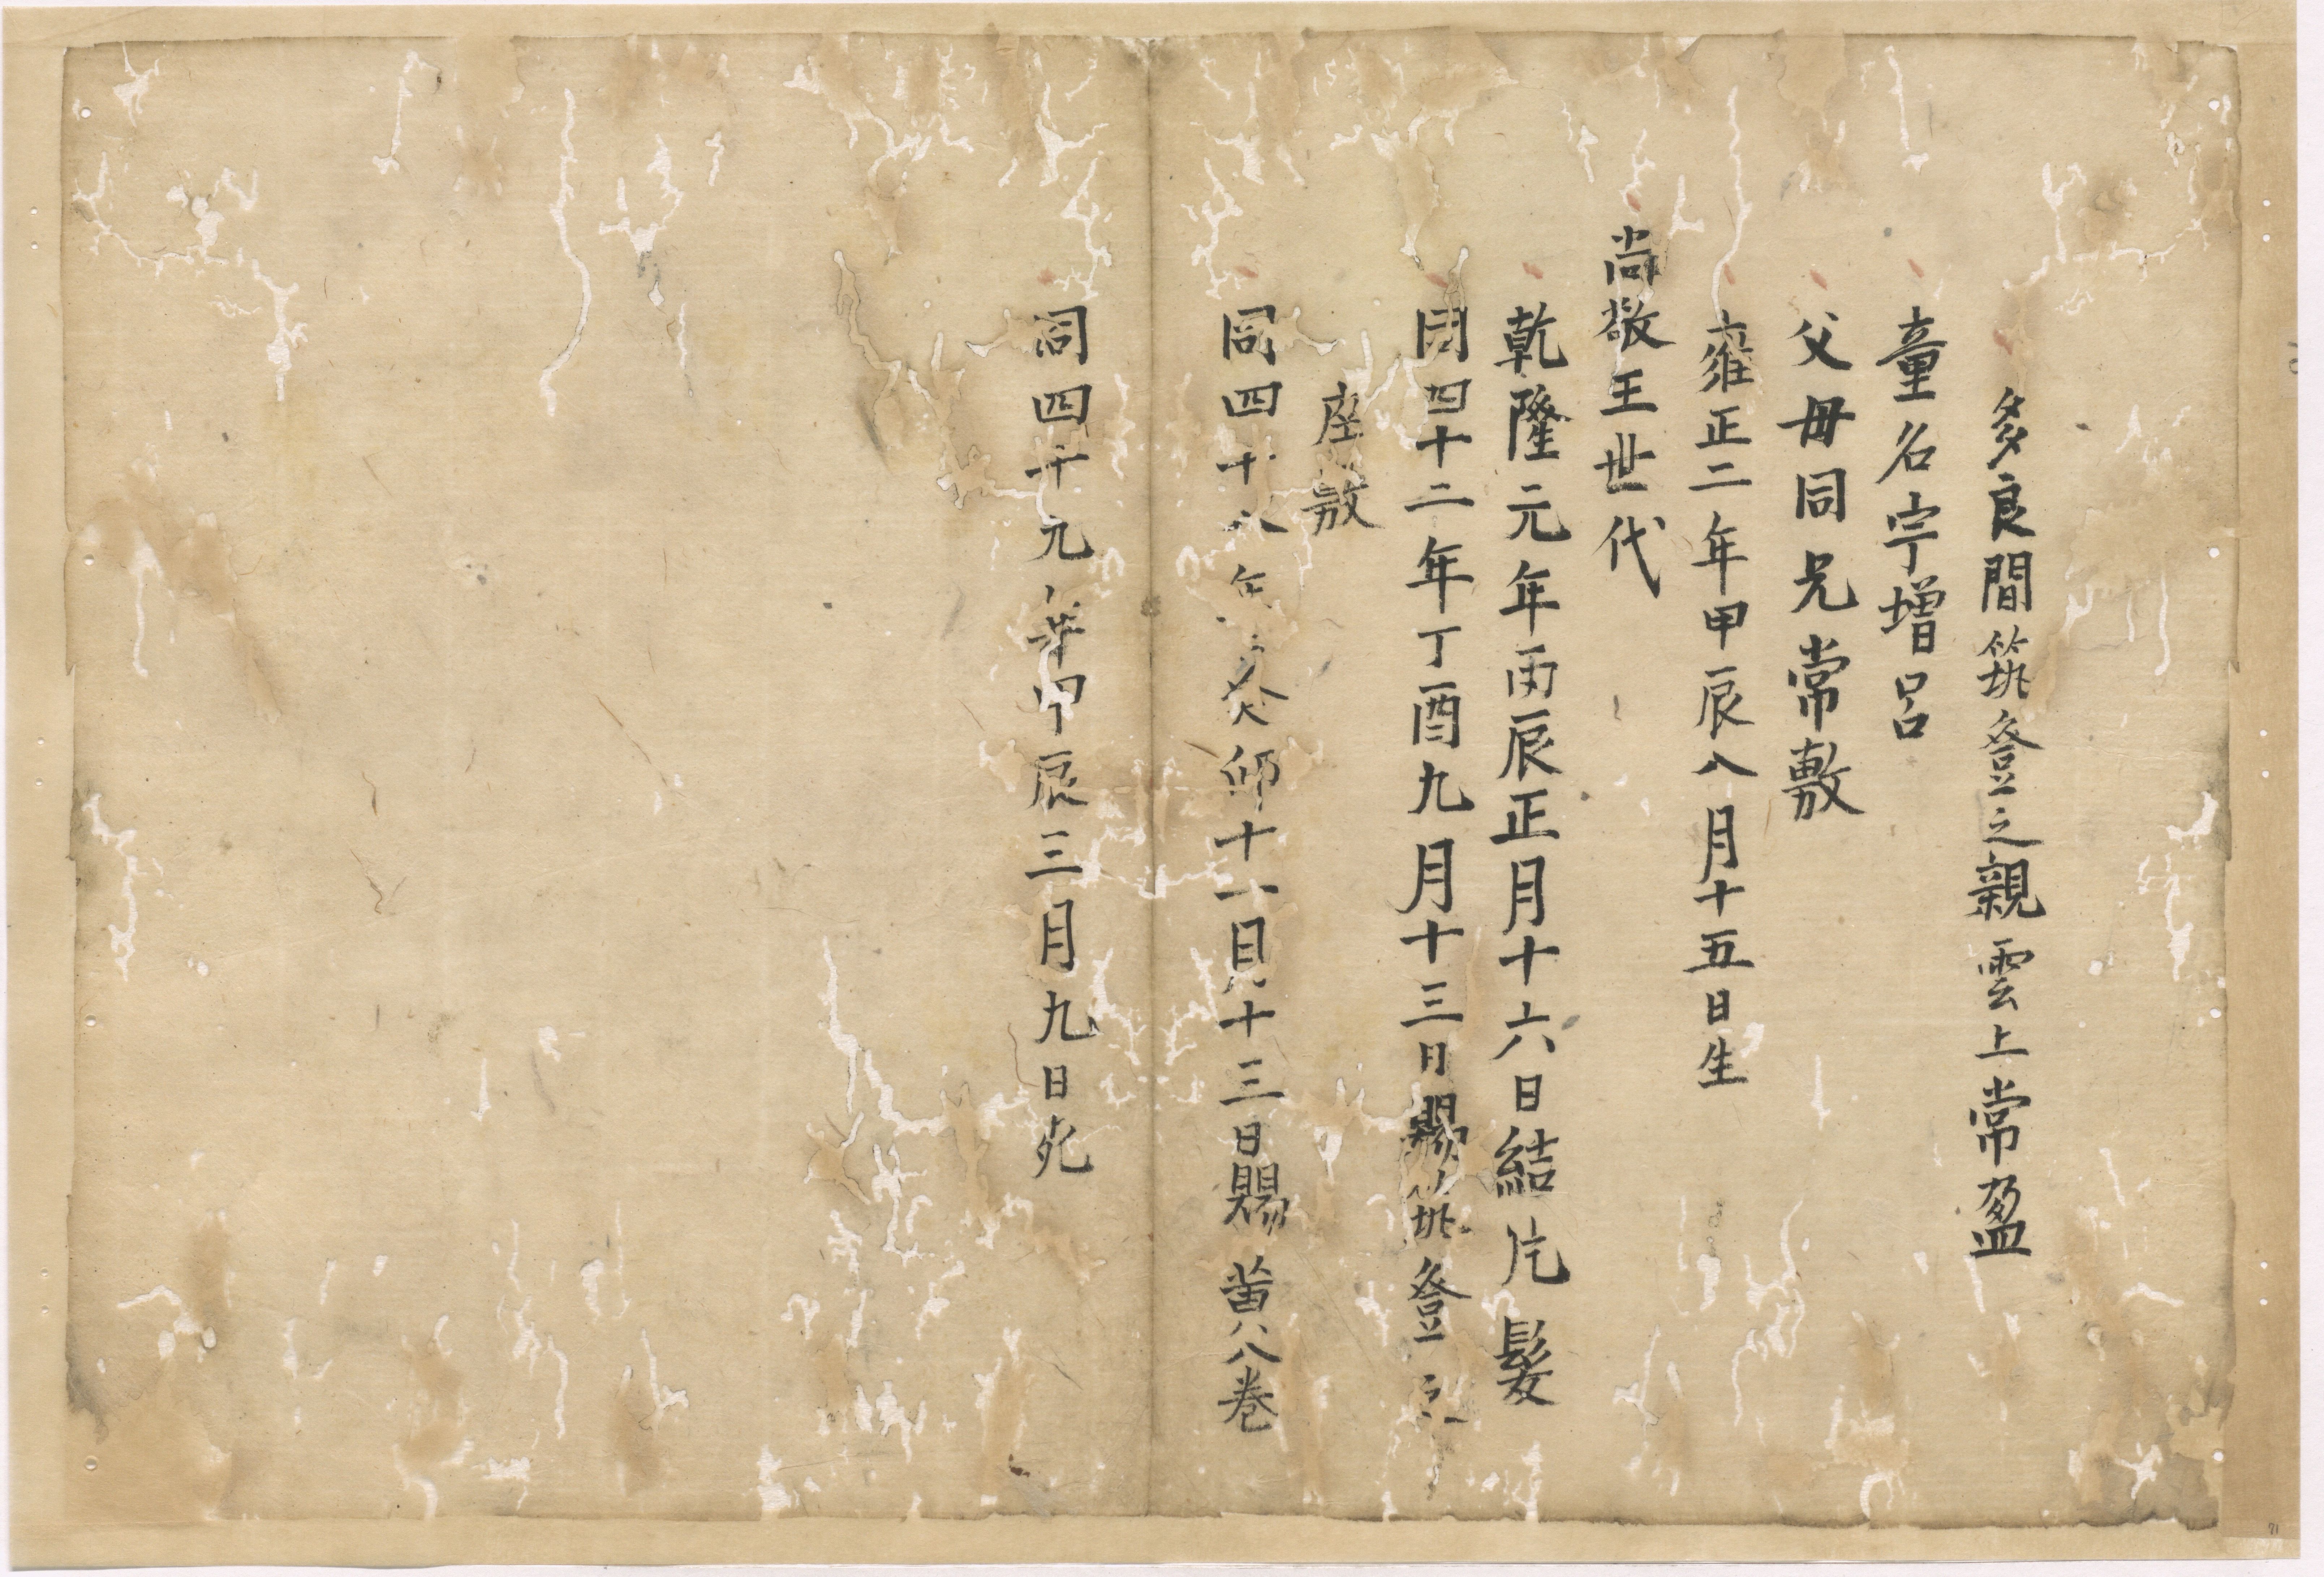 多良間筑登之親雲上常盈
童名宇增呂
父母同兄常敷
雍正二年甲辰八月十五日生
尚敬王世代
乾隆元年丙辰正月十六日結片髮
同四十二年丁酉九月十三日賜筑登之
座敷
同四十八年癸卯十一月十三日賜黄八巻
同四十九年甲辰三月九日死
71